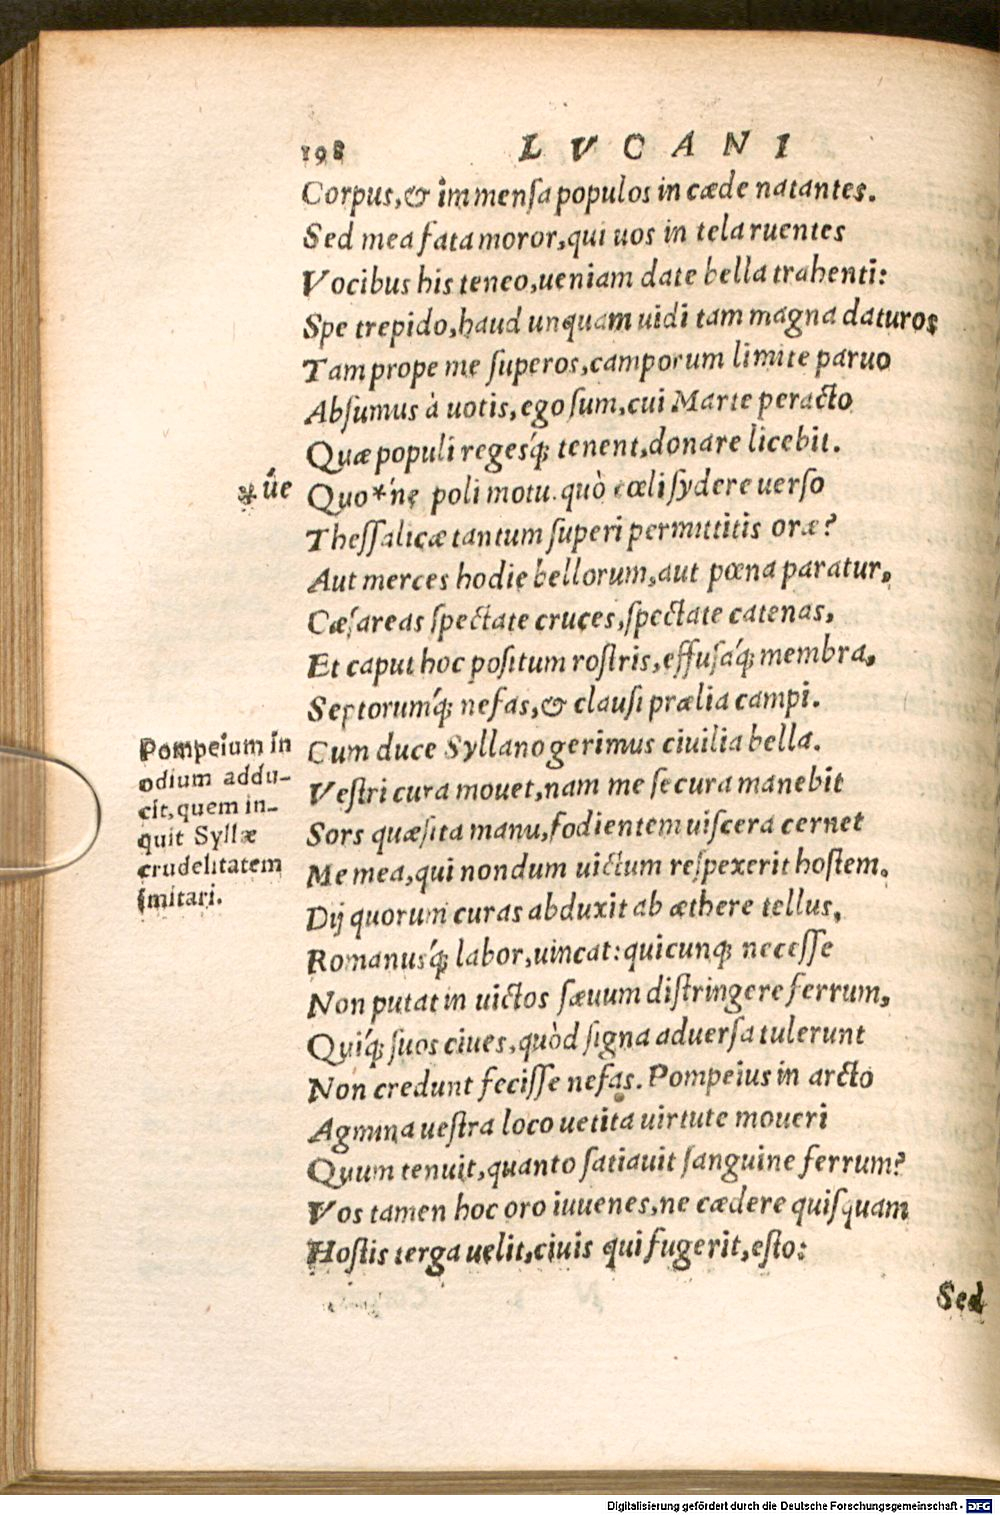 198 LVCANI
Corpus,& immensa populos in cæde natantes.
Sed mea fata moror,qui uos in tela ruentes
Vocibus his teneo,ueniam date bella trahenti:
Spe trepido,haud unquam uidi tam magna daturos
Tam prope me superos,camporum limite paruo
Absumus à uotis,ego sum,cui Marte peracto
Quæ populi regesq́; tenent,donare licebit.
*úe Quo*'ne poli motu.quò cœli sydere uerso
Thessalicæ tantum superi permittitis oræ?
Aut merces hodie bellorum,aut pœna paratur,
Cæsareas spectate cruces,spectate catenas,
Et caput hoc positum rostris,effusaq́; membra,
Septorumq́; nefas,& clausi prælia campi.
Cum duce Syllano gerimus ciuilia bella.
Vestri cura mouet,nam me secura manebit
Sors quæsita manu,fodientem uiscera cernet
Me mea,qui nondum uictum respexerit hostem.
Dij quorum curas abduxit ab æthere tellus,
Romanusq́; labor,uincat:quicunq; necesse
Non putat in uictos sæuum distringere ferrum,
Quiq́; suos ciues,quòd signa aduersa tulerunt
Non credunt fecisse nefas. Pompeius in arcto
Agmina uestra loco uetita uirtute moueri
Quum tenuit,quanto satiauit sanguine ferrum?
Vos tamen hoc oro iuuenes,ne cædere quisquam
Hostis terga uelit,ciuis qui fugerit,esto:
Sed
Pompeium in
odium addu-
cit,quem in-
quit Syllæ
crudelitatem
imitari.
Digitalisierung gefördert durch die Deutsche Forschungsgemeinschaft - DFG